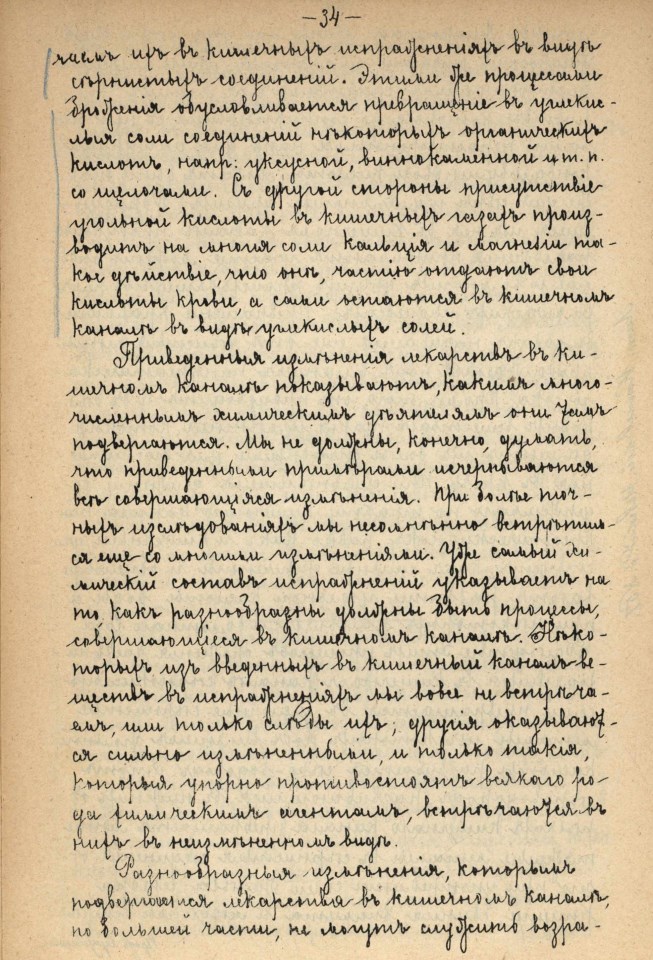 —34—
чаемъ ихъ въ кишечныхъ испражненіяхъ въ видѣ
сѣрнистыхъ соединеній. Этими же процессами
броженія обусловливается превращеніе въ углекис-
лыя соли соединеній нѣкоторыхъ органическихъ
кислотъ, напр: уксусной, виннокаменной и т. п.
со щелочами. Съ другой стороны присутствіе
угольной кислоты въ кишечныхъ газахъ произ-
водитъ на многія соли кальція и магнезіи та-
кое дѣйствіе, что онѣ, частію отдаютъ свои
кислоты крови, а сами остаются въ кишечномъ
каналѣ въ видѣ углекислыхъ солей.
Приведенныя измѣненія лекарствъ въ ки-
шечномъ каналѣ показываютъ, какимъ много-
численнымъ химическимъ дѣятелямъ они тамъ
подвергаются. Мы не должны, конечно, думать,
что приведенными примѣрами исчерпываются
всѣ совершающіяся измѣненія. При болѣе точ-
ныхъ изслѣдованіяхъ мы несомнѣнно встрѣтим-
ся еще со многими измѣненіями. Уже самый хи-
мическій составъ испражненій указываетъ на
то, какъ разнообразны должны быть процессы,
совершающіеся въ кишечномъ каналѣ. Нѣко-
торыхъ изъ введенныхъ въ кишечный каналъ ве-
ществъ въ испражненіяхъ мы вовсе не встрѣча-
емъ, или только слѣды ихъ; другія оказывают-
ся сильно измѣненными, и только такія,
которыя упорно противостоятъ всякаго ро-
да химическимъ агентамъ, встрѣчаются въ
нихъ въ неизмѣненномъ видѣ.
Разнообразныя измѣненія, которымъ
подвергаются лекарства въ кишечномъ каналѣ,
по большей части, не могутъ служить возра-